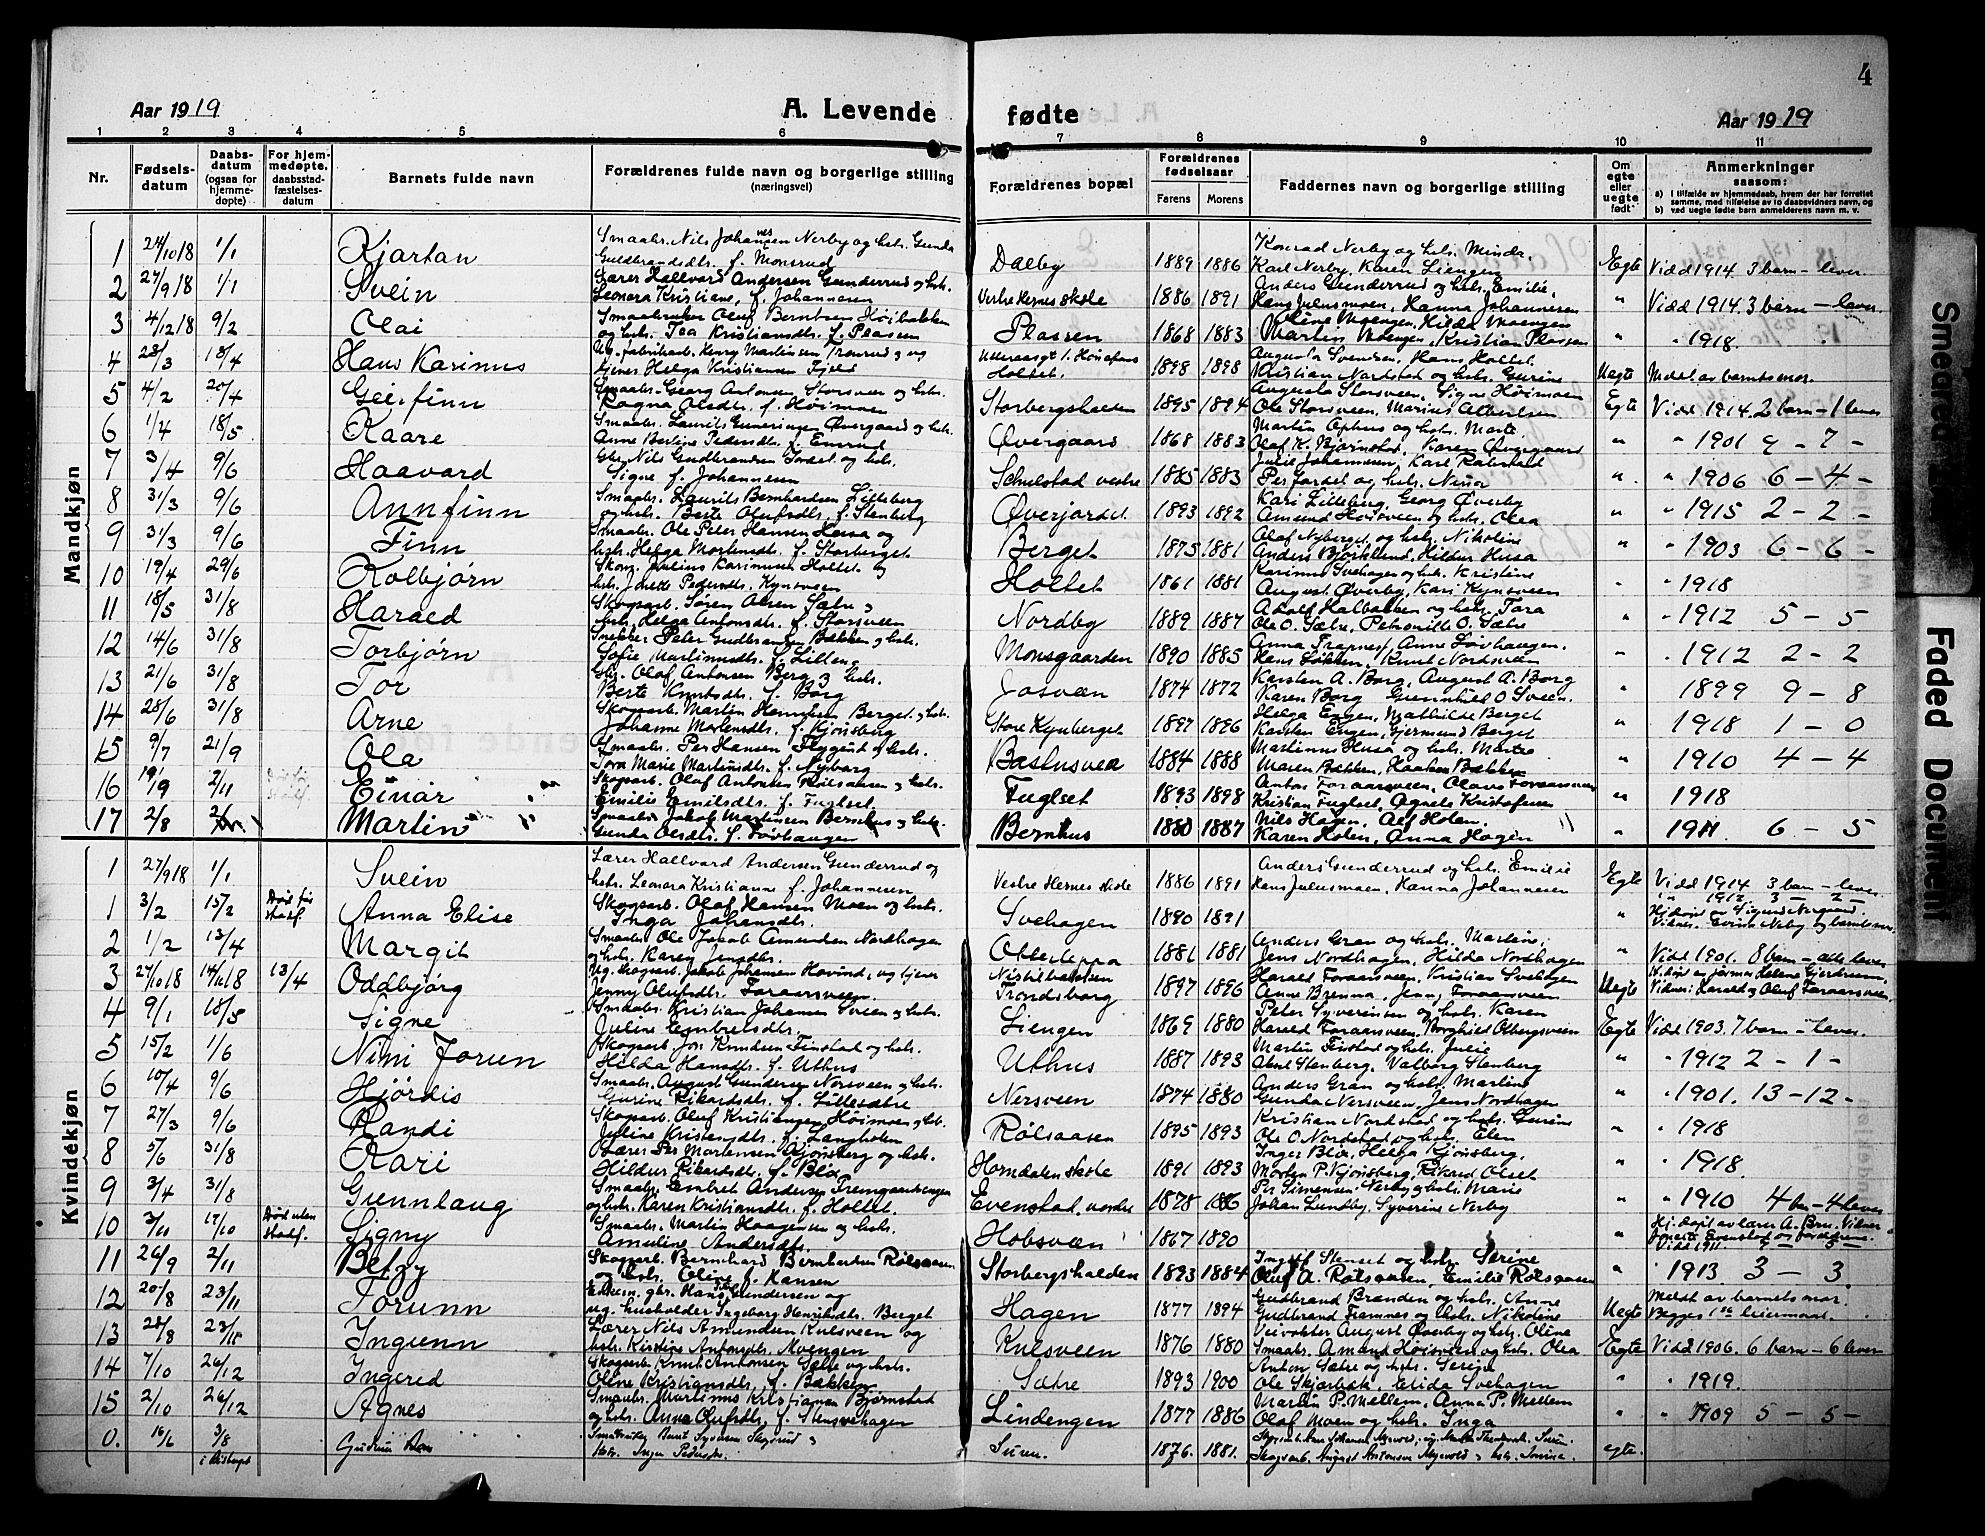 4
Aar 1919
A. Levende
fødte
Aar 1919
1 2 3 4 5 6 7 8 9 10 11
Nr.
Fødsels-
datum
Daabs-
datum
(ogsaa for
hjemme-
døpte)
For hjem-
medøpte,
daabsstad-
fæstelses-
datum
Barnets fulde navn
Forældrenes fulde navn og borgerlige stilling
(næringsvei)
Forældrenes bopæl
Forældrenes
fødselsaar
Farens Morens
Faddernes navn og borgerlige stilling
Om
egte
eller
uegte
født
Anmerkninger
saasom:
a) I tilfælde av hjemmedaab, hvem der har forrettet
samme, med tilføielse av to daabsvidners navn, og
b) ved uegte fødte barn anmelderens navn m. v.
Mandkjøn
1 24/10 18 1/1 Kjartan Smaabr. Nils Johansen Nerby og hstr. Gunda
Guldbrandsdtr. f. Monsrud Dalby 1889 1886 Konrad Nerby og hstr. Minda,
Karl Nerby, Karen Liengen Egte Vidd 1914. 3 barn – lever.
2 27/9 18 1/1 Svein Lærer Hallvard Andersen Gunderrud og hstr.
Leonora Kristiane, f. Johannesen Vestre Hernes skole 1886 1891 Anders Gunderrud og hstr. Emilie,
Hans Julusmoen, Hanna Johannesen " Vidd 1914. 3 barn – lever.
3 4/12 18 9/2 Olai Smaabruker Oluf Berntsen Høibakken
og hstr. Tea Kristiansdtr. f. Plassen Plassen 1868 1883 Stine Moengen, Hilda Moengen
Martin Moengen, Kristian Plassen " " 1918.
4 23/3 18/4 Hans Karinus Ug. fabrikarb. Henry Martinsen Tronrud og ug.
tjener Helga Kristiansen Fjeld Holtet. 1898 1898 Augusta Svendsen, Hans Holtet,
Kristian Nordstad og hstr. Gurine Uegte Meldt av barnets mor.
5 4/2 20/4 Geirfinn Smaabr. Georg Antonsen Storsveen og hstr.
Ragna Olsdtr. f. Høimoen Storbergshalsen 1895 1894 Augusta Storsveen, Signe Høimoen
Ole Storsveen, Marius Albertsen Egte Vidd 1914. 2 barn – 1 lever
6 1/4 18/5 Kaare Smaabr. Laurits Gunneriusen Øvergaard og hstr.
Anne Berline Pedersdtr. f. Emrud Øvergaard 1868 1883 Martin Ophus og hstr. Marte,
Olaf K. Bjørnstad, Karen Øvergaard " " 1901 9 – 7 –
7 3/4 9/6 Haavard Gbr. Nils Gudbrandsen Jordet og hstr.
Signe f. Johannesen Schulstad vestre 1885 1883 Julie Johannesen, Karl Rabstad
Per Jordet og hstr. Nena " " 1906 6 – 4 –
8 31/3 9/6 Arnfinn Smaabr. Laurits Bernhardsen Lilleberg
og hstr. Berte Olufsdtr. f. Stenberg Øverjordet 1893 1892 Kari Lilleberg, Georg Øverby
Amund Høisveen og hstr. Olea " " 1915 2 – 2 –
9 31/3 9/6 Finn Smaabr. Ole Peter Hansen Husa og
hstr. Helga Mortensdtr. f. Storberget Berget 1875 1881 Olaf Nyberget og hstr. Nikoline
Anders Bjørklund, Hildur Husa " " 1903 6 – 6 –
10 19/4 29/6 Kolbjørn Skog. Julius Karinusen Holtet og
hstr. Jonette Pedersdtr. Kynsveen Holtet 1861 1881 Karinus Svehagen og hstr. Kristine
August Øverby, Kari Kynsveen " " 1918
11 18/5 31/8 Harald Skogsarb. Søren Olsen Sætre og
hstr. Helga Antonsdtr. f. Storsveen Nordby 1889 1887 Adolf Halbakken og hstr. Tara
Ole O. Sætre, Petronille O. Sætre " " 1912 5 – 5
12 14/6 31/8 Torbjørn Snekker Peter Gudbransen Bækken og hstr.
Sofie Martinusdtr. f. Lilleng Monsgaarden 1890 1885 Anna Framnes, Anne Løvhaugen,
Hans Løkken, Knut Nordsveen " " 1912 2 – 2
13 21/6 31/8 Tor Olaf Antonsen Berg og hstr.
Berte Knutsdtr. f. Borg Josveen 1874 1872 Karsten A. Borg, August A. Borg
Karen Borg Gunnhild O Sveen " " 1899 9 – 8
14 28/6 31/8 Arne Skogsarb. Martin Henriksen Berget og hstr.
Johanne Mortensdtr. f. Kjønsberg Store Kynberget 1897 1896 Helga Engen, Mathilde Berget
Karsten Engen, Gjermund Berget " " 1918 1 – 0
15 9/7 21/9 Ola Smaabr. Per Hansen Flygind og hstr.
Tora Marie Martinsdtr. f. Nyborg Bastusvea 1884 1888 Martinus Husa og hstr. Marte
Maren Bækken, Haakon Bækken " " 1910 4 – 4
16 19/9 2/11 Einar Skogsarb. Olaf Antonsen Rølsaasen og hstr.
Emilie Emilsdtr. f. Fuglset Fuglset 1893 1898 Anton Foraarsveen, Olava Foraarsveen
Kristian Fuglset, Agnete Kristofersen " " 1918
17 2/8 Martin Smaabr. Jakob Martinsen Bernhus og hstr.
Gunda Olsdtr. f. Løvhaugen Bernhus 1880 1887 Nils Hagen, Alf Holen,
Karen Holen, Anna Hagen " " 1911 6 – 5
Kvindekjøn
1 27/9 18 1/1 Svein Lærer Hallvard Andersen Gunderrud og
hstr. Leonora Kristianne f. Johannesen Vestre Hernes skole 1886 1891 Anders Gunderrud og hstr. Emilie
Hans Julusmoen, Hanna Johannesen Egte Vidd 1914 3 barn – lever.
1 3/2 15/2 Død før stadf. Anna Elise Skogsarb. Olaf Hansen Moen og hstr.
Inga Johansdtr. Svehagen 1890 1891 " " 1912 3 – 2 –
2 1/2 13/4 Margit Smaabr. Ole Jakob Amundsen Nordhagen
og hstr. Karen Jensdtr. 1881 1881 Anders Gran og hstr. Martine,
Jens Nordhagen, Hilda Nordhagen " Vidd 1901. 8 barn – alle lever
3 27/10 18 14/11 18 13/4 Oddbjørg Ug. Skogsarb. Jakob Johansen Hovind, ug tjener
Jenny Olufsdtr. Foraarsveen. Trondsborg 1897 1896 Harald Foraarsveen, Kristian Svehagen
Anne Brenna, Jenny Foraarsveen Uegte Vidner: Harald og Oluf Foraarsveen.
4 9/1 18/5 Signe Smaabr. Kristian Johansen Sveen og hstr.
Juline Embretsdtr. Liengen 1869 1880 Peter Syversen og hstr. Karen
Harald Foraarsveen, Borghild Olbergsveen Egte Vidd 1903. 7 barn – lever.
5 15/2 1/6 Nini Jorun Skogsarb. Jon Knudsen Finstad og hstr.
Hilda Hansdtr. f. Uthus Uthus 1887 1893 Martin Finstad og hstr. Julie
Olene Stenberg, Valborg Stenberg " " 1912 2 – 1 –
6 10/4 9/6 Hjørdis Smaabr. August Gundersen Nersveen og hstr.
Gurine Rikardsdtr. f. Lillesætre Nersveen 1874 1880 Anders Gran og hstr. Martine
Gunda Nersveen, Jens Nordhagen " " 1901. 13 – 12 –
7 27/3 9/6 Randi Skogsarb. Oluf Kristiansen Høimoen og hstr.
Juline Kristensdtr. f. Langholen Rølsaasen 1895 1893 Kristian Nordstad og hstr. Gurine
Ole O. Nordstad og hstr. Elen " " 1918
8 5/6 31/8 Kari Lærer Per Mortensen Kjønsberg og hstr.
Hildur Rikardsdtr. f. Blix Horndalen skole 1891 1893 Inger Blix, Helga Kjønsberg,
Morten P. Kjønsberg, Rikard Olset " " 1918.
9 3/4 31/8 Gunnlaug Smaabr. Embret Andersen Fremgaardsengen
og hstr. Karen Kristiansdtr. f. Holtet. Evenstad nordre 1878 1886 Per Simensen Nerby og hstr. Marie
Johan Lundby, Syverine Nerby " " 1910 4 bn – 4 lever
10 3/10 17/10 Død uten stadf. Signy Smaabr. Martin Haagensen og hstr.
Amaline Andersdtr. Hobsveen 1867 1890 " Vidd 1911. 9 – 5 –
11 26/9 2/11 Betzy Skogarb. Bernhard Bernhardsen Rølsaasen
og hstr. Oline f. Hansen Storbergshalden 1893 1884 Ingolf Stenset og hstr. Serine
Oluf A. Rølsaasen, Emilie Rølsaasen " " 1913. 3 – 3.
12 20/8 23/11 Torunn Enkem. gbr. Hans Gundersen og
ug. husholder Ingeborg Henriksdtr. Berget Hagen 1877 1894 Gudbrand Branden og hstr. Anne
Gudbrand Framnes og hstr. Nikoline Uegte Meldt av barnets mor.
Begges 1ste leiermaal.
13 28/8 23/11 Ingunn Lærer Nils Amundsen Kulsveen og
hstr. Kirstine Antonsdtr. Moengen Kulsveen 1876 1880 Veivokter August Øverby og hstr. Oline
Smaabr. Amund Høisveen og hstr. Olea Egte Vidd 1906. 6 barn – 6 lever
14 7/10 26/12 Ingerid Skogsarb. Knut Antonsen Sætre og hstr.
Oline Kristiansdtr. f. Bækken Sætre 1893 1900 Anton Sætre og hstr. Serine
Ole Skjærbæk, Elida Svehagen " " 1919.
15 2/10 26/12 Agnes Smaabr. Martinus Kristiansen Bjørnstad
og hstr. Anna Olufsdtr. f. Stensvehagen Lindengen 1877 1886 Martin P. Mellem, Anna P. Mellem
Olaf Moen og hstr. Inga " " 1909 5 – 5 –
0. 16/6 3/8 Gudrun
hstr. Inga Pedersdtr. 1876. 1881. Skogsarb. August Antonsen Myrvold og hstr. egte
Smeared
Faded Document